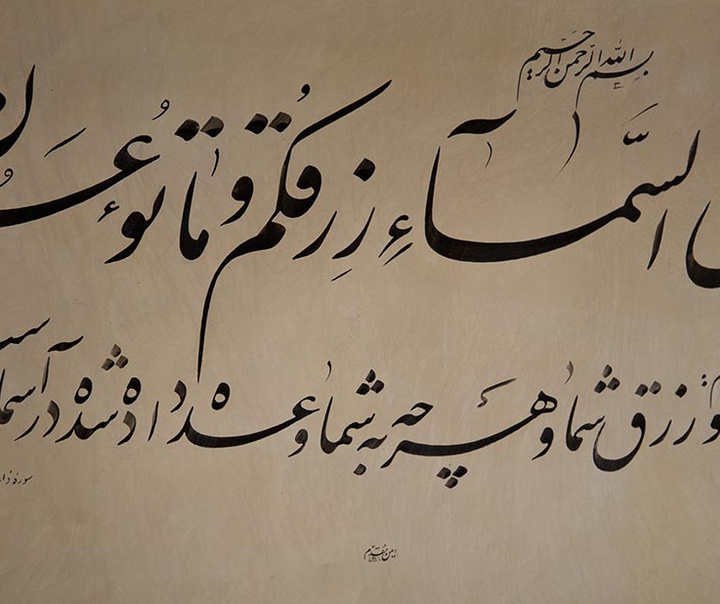 بسم الله الرحمن الرحيم
السَّمآءِ رِزقُكُم وَمٰا توُعَ
و رزق شما و هر چه به شما وعده داده شده در آسما
سوره ذار